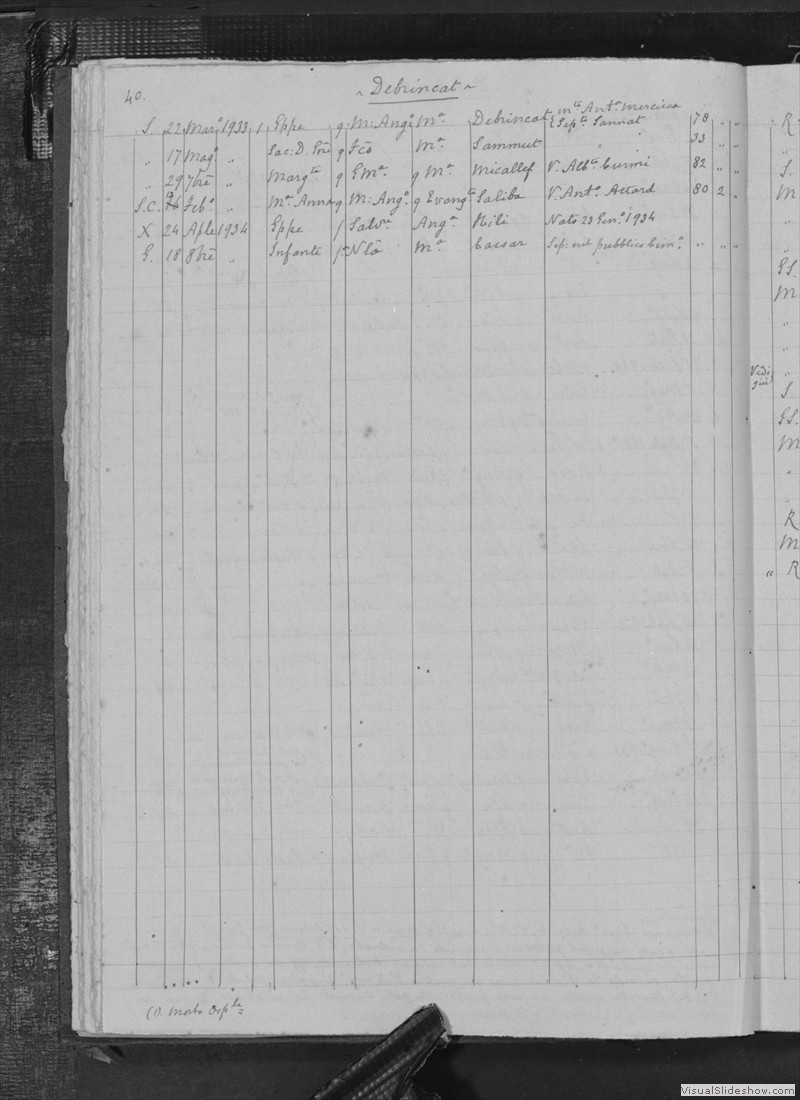 40.
~ Debrincat ~
S. 22 Marº 1933 1 Eppe q M: Angº Mª Debrincat mta Antº Mercieca
Sepº Sannat 78 " "
" 17 Magº " Sac: D. Gnē q Fcō Mª Sammut " 33 " "
" 29 7brē " Margta q Emª q Mª Micallef V. Albto Curmi 82 " "
S.C. Febº " Mª Anna q M: Angº q Evangta Saliba V. Antº Attard 80 2 "
X 24 Aple 1934 Eppe f Salvre Angª Hili Nato 23 Genº 1934
E. 18 8brē " Infante f Nlō Mª Caesar Sep: nel pubblico Cimº " " "
(1). Morto Osple
R
S.
M
"
"
ES.
M
"
"
Vedi giù "
S
ES.
M
"
"
R
M
" R
VisualSlideshow.com